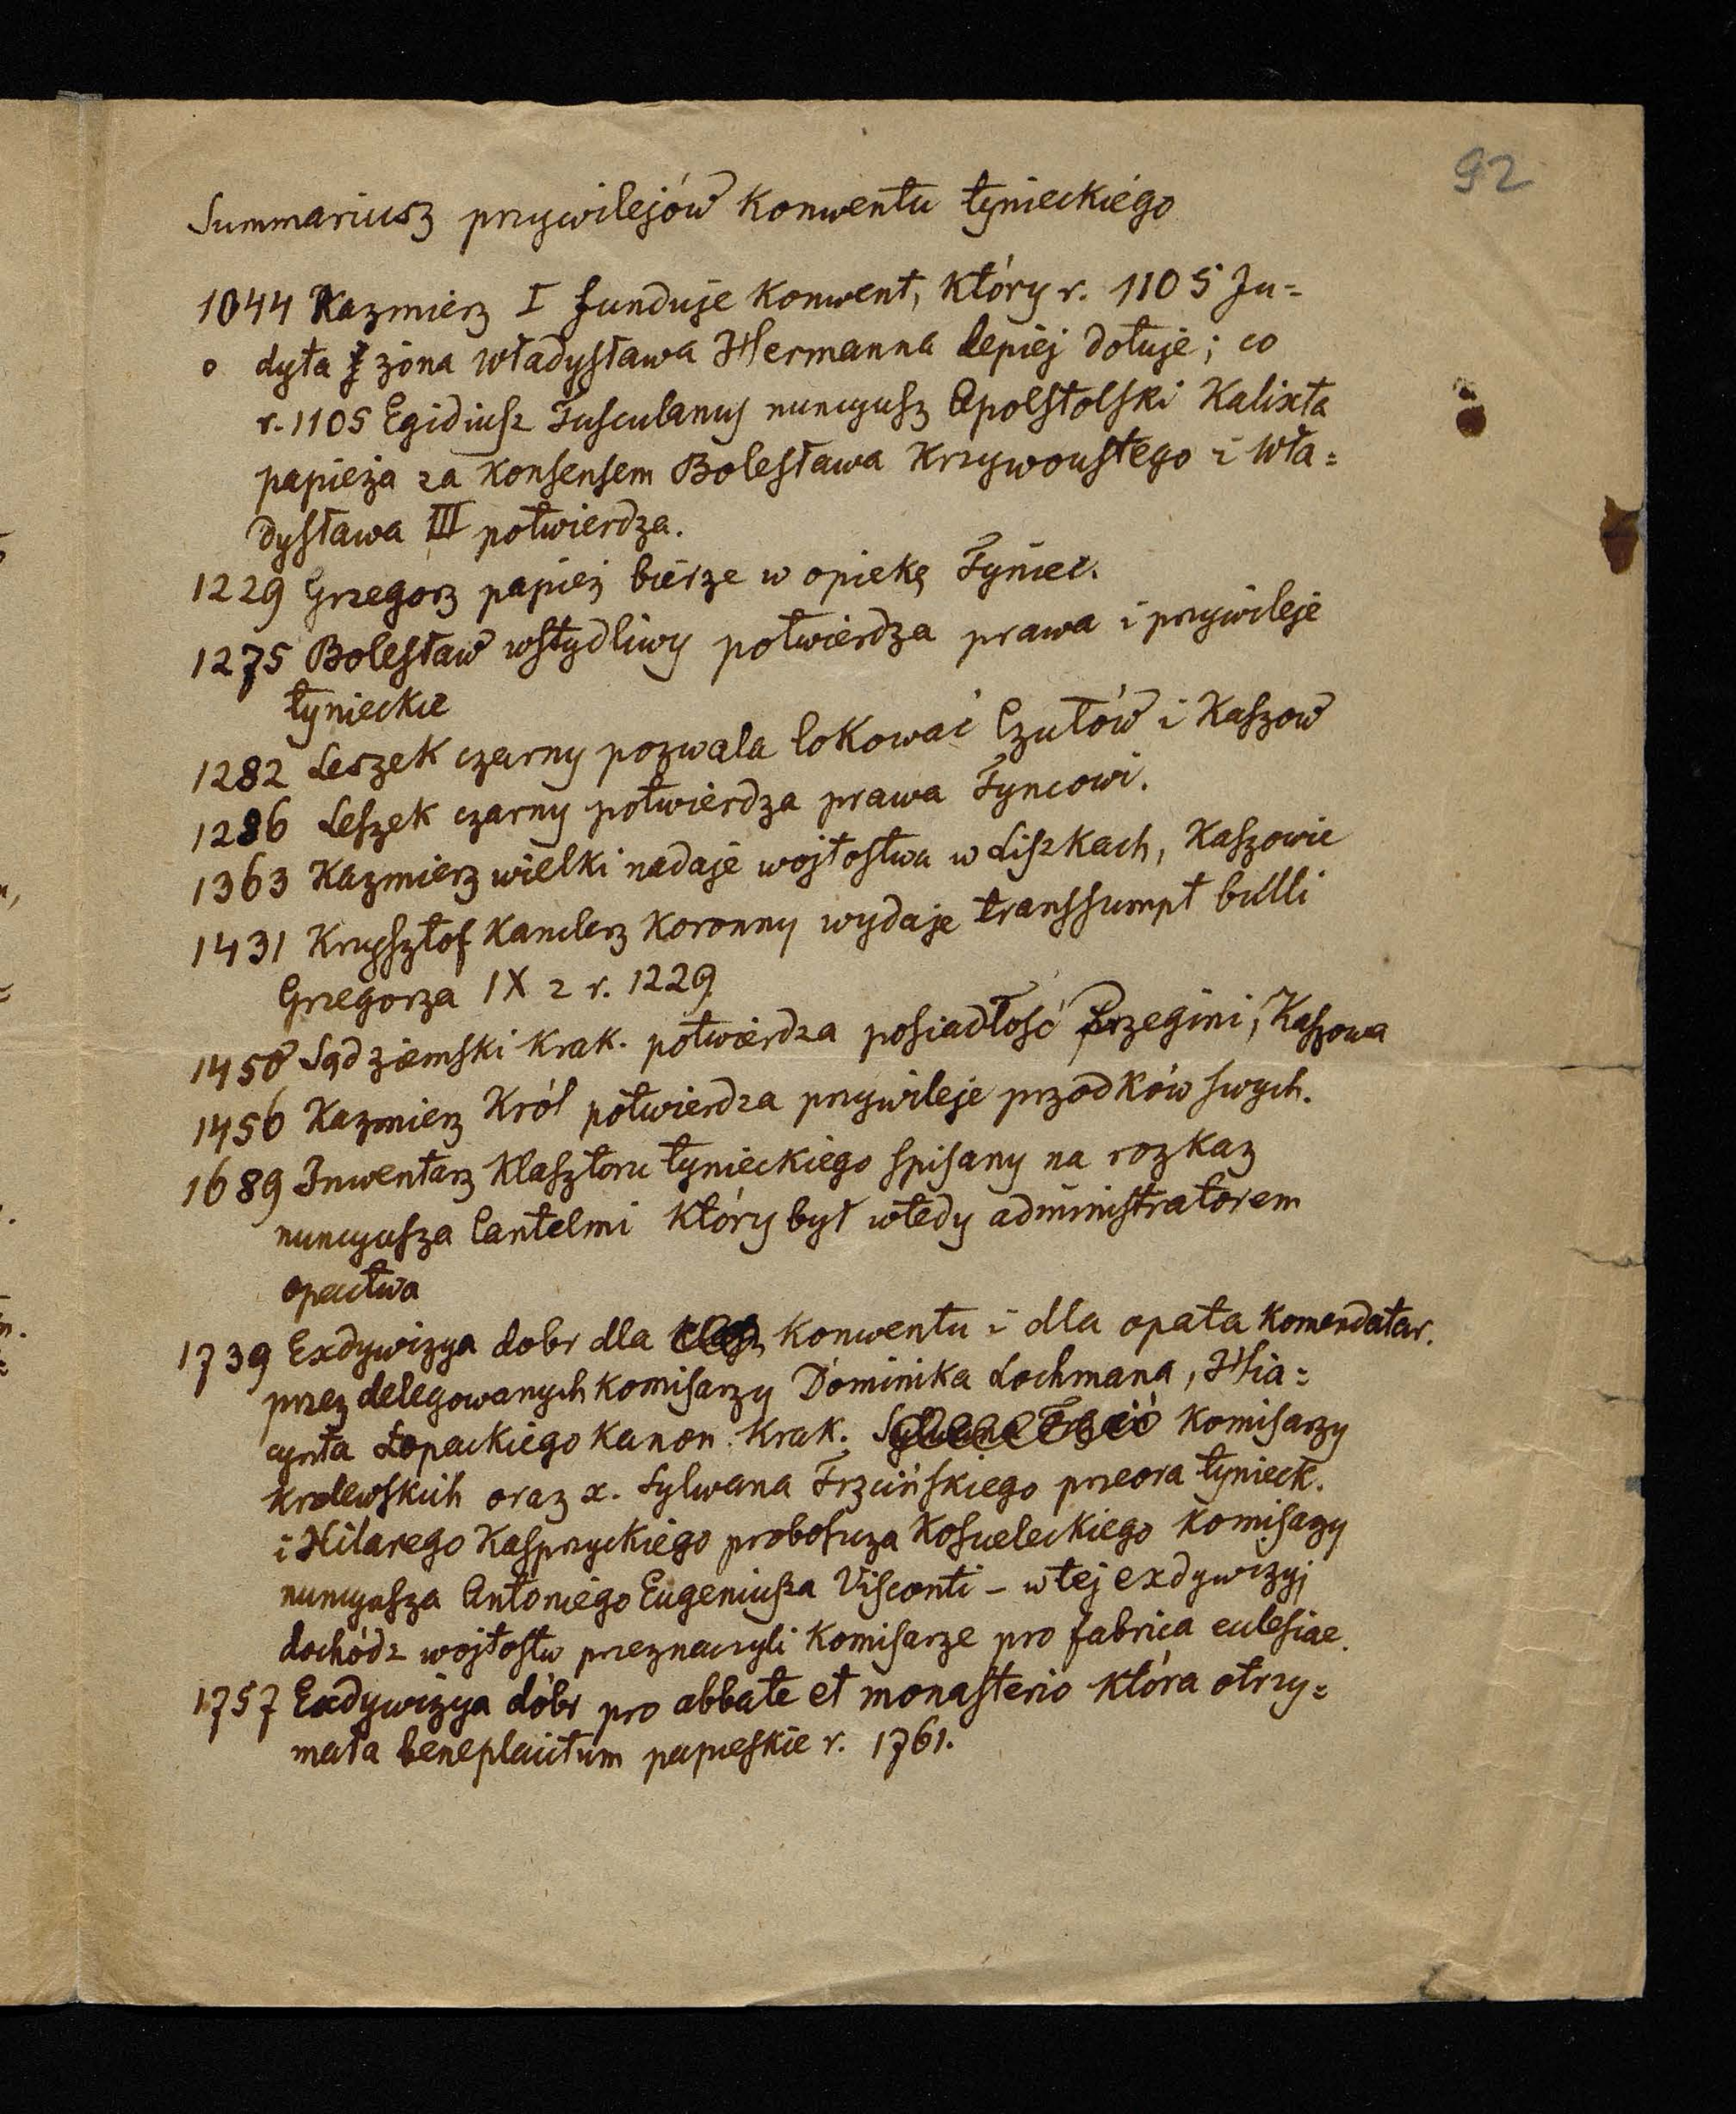 92
Summariusz przywilejów Konwentu tynieckiego
1044 Kazmierz I funduje Konwent, który r. 1105 Ju=
dyta żona Władysława Hermanna lepiej dotuje; co
r. 1105 Egidiusz Tusculanus nuncyusz Apolstolski Kalixta
papieża za Konsensem Bolesława Krzywoustego i Wła=
dysława III potwierdza.
1229 Grzegorz papież bierze w opiekę Tyniec.
1275 Bolesław wstydliwy potwierdza prawa i przywileje
tynieckie
1282 Leszek czarny pozwala lokować Czułów i Kaszow
1286 Leszek czarny potwierdza prawa Tyncowi.
1363 Kazmierz wielki nadaje wojtostwa w Liszkach, Kaszowie
1431 Krzysztof Kanclerz Koronny wydaje transsumpt bulli
Grzegorza IX z r. 1229
1450 Sąd ziemski Krak. potwierdza posiadłość Przegini, Kaszowa
1456 Kazmierz Król potwierdza przywileje przodków swych.
1689 Inwentarz Klasztoru tynieckiego spisany na rozkaz
nuncyusza Cantelmi który był wtedy administratorem
opactwa
1739 Exdywizya dobr dla Konwentu i dla opata Komendatar.
przez delegowanych Komisarzy Dominika Lochmana, Hia=
cynta Łopackiego Kanon. Krak. Komisarzy
krolewskich oraz x. Sylwana Trzcińskiego przeora tynieck.
i Hilarego Kasprzyckiego proboszcza Koscieleckiego Komisarzy
nuncyusza Antoniego Eugeniusza Visconti – w tej exdywizyj
dochód z wojtostw przeznaczyli Komisarze pro fabrica eclesiae.
1757 Exdywizya dóbr pro abbate et monasterio która otrzy=
mała beneplacitum papieskie r. 1761.